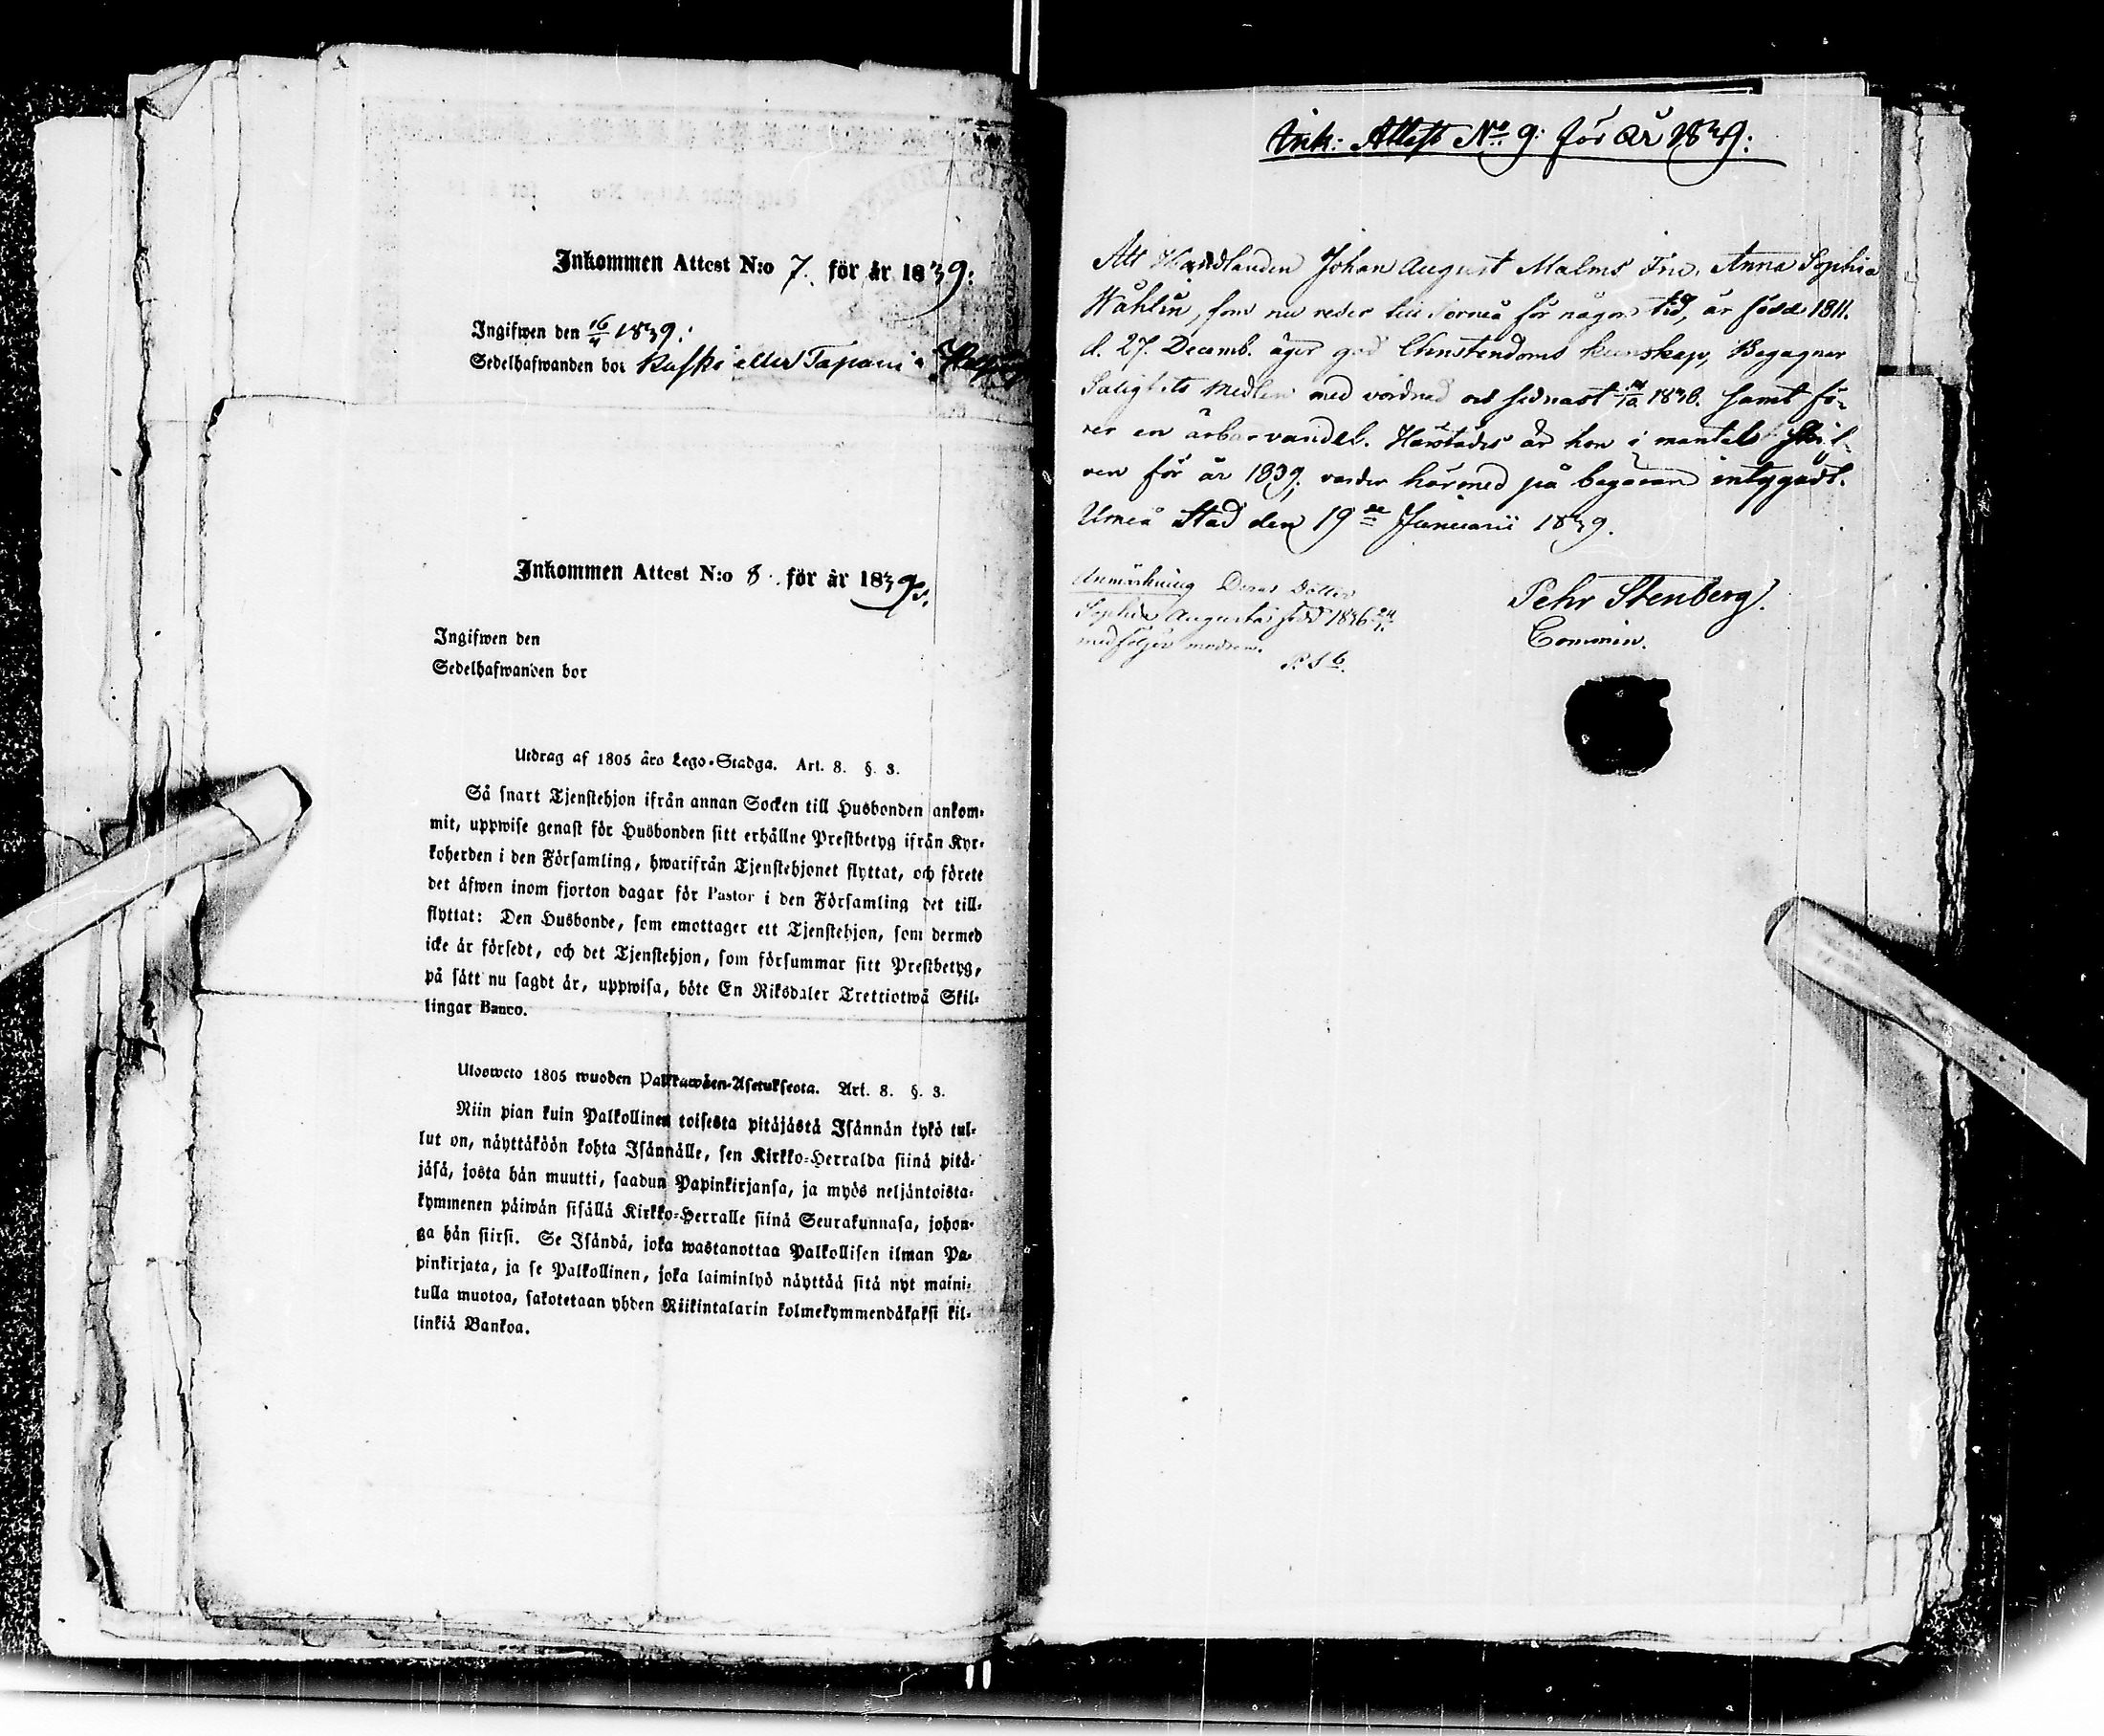 Inkommen Attest N:o 7. för år 1839:
Ingifwen den 16/4 1839:
Sedelhafwanden bor Ruski eller Tapani
Inkommen Attest N:o 8. för år 1839.
Ingifwen den
Sedelhafwanden bor
Utdrag af 1805 års Lego-Stadga. Art. 8. §. 3.
Så snart Tjenstehjon ifrån annan Socken till Husbonden ankom-
mit, uppwise genast för Husbonden sitt erhållne Prestbetyg ifrån Kyr-
koherden i den Församling, hwarifrån Tjenstehjonet flyttat, och förete
det äfwen inom fjorton dagar för Pastor i den Församling det till-
flyttat: Den Husbonde, som emottager ett Tjenstehjon, som dermed
icke är försedt, och det Tjenstehjon, som försummar sitt Prestbetyg,
på sätt nu sagdt är, uppwisa, böte En Riksdaler Trettiotwå Skil-
lingar Banco.
Ulosweto 1805 wuoden Palkkawäen-Asetuksesta. Art. 8. §. 3.
Niin pian kuin Palkollinen toisesta pitäjästä Isännän tykö tul-
lut on, näyttäköön kohta Isännälle, sen Kirkko-Herralda siinä pitä-
jäsä, josta hän muutti, saadun Papinkirjansa, ja myös neljäntoista-
kymmenen päiwän sisällä Kirkko-Herralle siinä Seurakunnasa, johon-
ga hän siirsi. Se Isändä, joka wastanottaa Palkollisen ilman Pa-
pinkirjata, ja se Palkollinen, joka laiminlyö näyttää sitä nyt maini-
tulla muotoa, sakotetaan yhden Riikintalarin kolmekymmendäkaksi kil-
linkiä Bankoa.
Ink: Attest No 9: för år 1839:
Att Handlanden Johan August Malms Fru, Anna Sophia
Wåhlin, som nu reser till Torneå för någon tid, är född 1811.
d. 27. Decemb. äger god Christendoms kunskap, Begagnar
Salighets Medlen med vördnad och sednast 1838. samt fö-
rer en ärbar vandel. Härstädes är hon i mantals skrif-
ven för år 1839; varder härmed på begäran intygadt.
Umeå Stad den 19de Januarii 1839.
Pehr Stenberg.
Commin.
Anmärkning Deras Dotter
Sophia Augusta född 1836 24/
medföljer modren.
P. S-g.